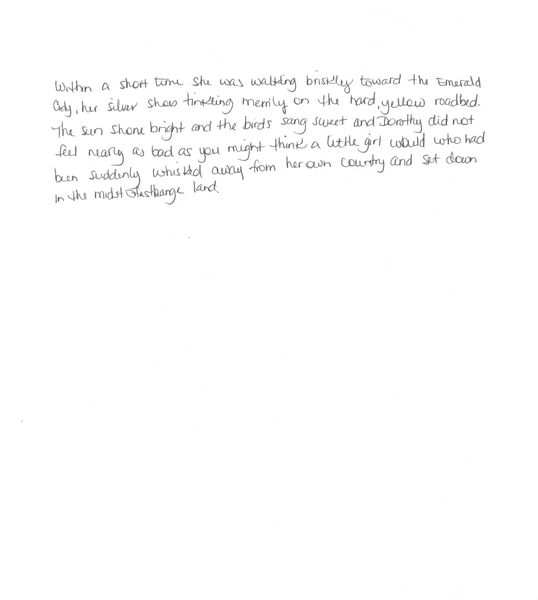 Within a short time she was walking briskly toward the Emerald
City, her silver shoes tinkling merrily on the hard, yellow roadbed.
The sun shone bright and the birds sang sweet and Dorothy did not
feel nearly as bad as you might think a little girl would who had
been suddenly whisked away from her own country and set down
in the midst land